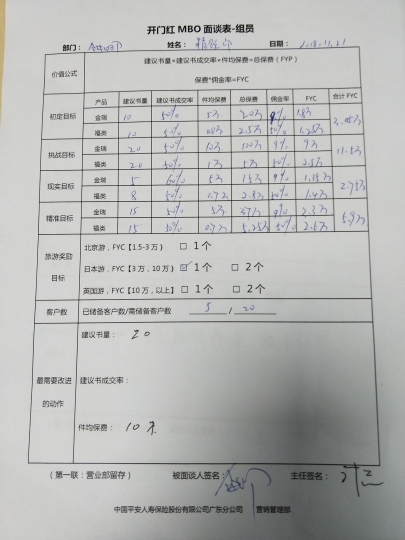 开门红 MBO 面谈表-组员
部门： 姓名： 日期：2018.11.21
价值公式 建议书量×建议书成交率×件均保费=总保费（FYP）
保费*佣金率=FYC
产品 建议书量 建议书成交率 件均保费 总保费 佣金率 FYC 合计 FYC
初定目标 金瑞 10 50% 5万 9% 3.05万
福类 10 50% 2.5万 50% 1.25万
挑战目标 金瑞 20 50% 10万 100万 9% 9万 11.5万
福类 20 50% 1万 5万 50% 2.5万
现实目标 金瑞 5 60% 5万 15万 9% 1.35万 2.75万
福类 8 50% 2.8万 50% 1.4万
精准目标 金瑞 15 50% 5万 37万 9% 3.3万 5.9万
福类 15 50% 0.7万 5.25万 50% 2.6万
旅游奖励目标
北京游，FYC【1.5-3 万） □ 1个
日本游，FYC【3 万，10 万） ☑ 1个 □ 2个
英国游，FYC【10 万，以上】 □ 1个 □ 2个
客户数 已储备客户数/需储备客户数 5 / 20
最需要改进的动作
建议书量： 20
建议书成交率：
件均保费： 10
（第一联：营业部留存） 被面谈人签名： 主任签名：
中国平安人寿保险股份有限公司广东分公司 营销管理部